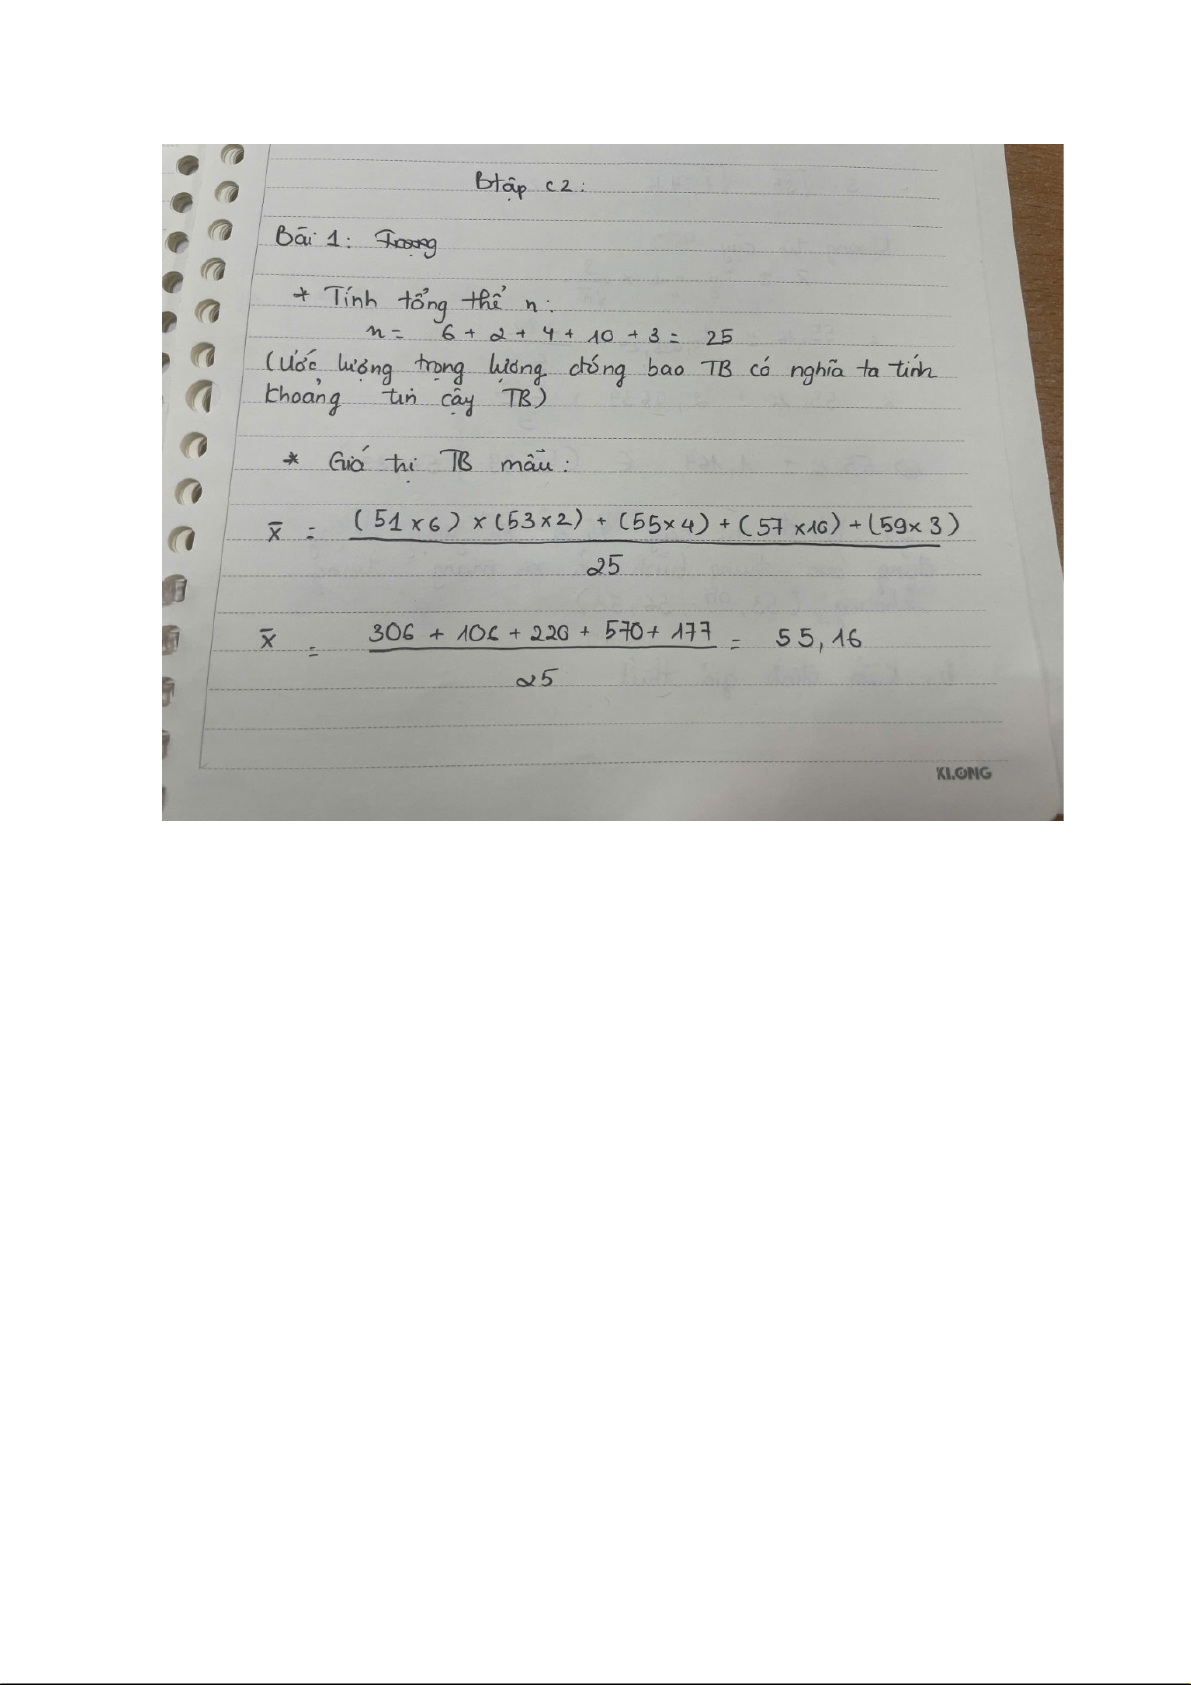 Btập c2:
Bài 1: Trọng
* Tính tổng thể n:
n = 6 + 2 + 4 + 10 + 3 = 25
(Ước lượng trọng lượng đóng bao TB có nghĩa ta tính
khoảng tin cậy TB)
* Giá trị TB mẫu:
x̄ = (51 x 6) x (53 x 2) + (55 x 4) + (57 x 10) + (59 x 3)
25
x̄ = 306 + 106 + 220 + 570 + 177 = 55,16
25
KLONG